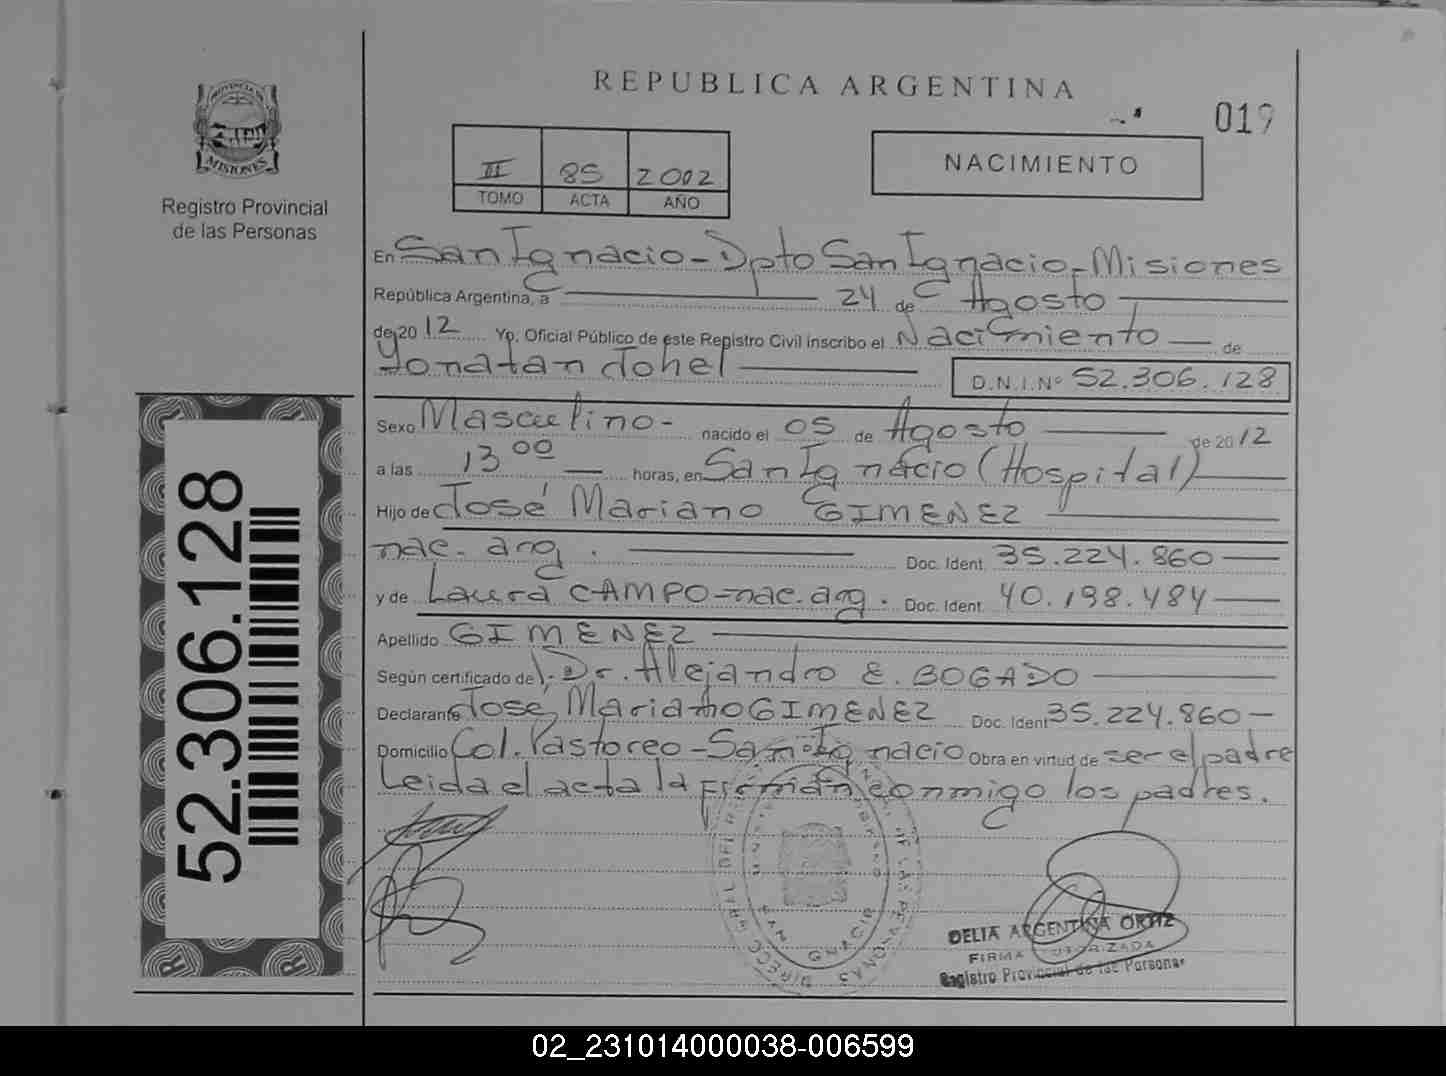 REPUBLICA ARGENTINA
019
PROVINCIA DE
MISIONES
Registro Provincial
de las Personas
III 85 2002
TOMO ACTA AÑO
NACIMIENTO
En San Ignacio - Dpto San Ignacio - Misiones
República Argentina, a 24 de Agosto
de 20 12 Yo, Oficial Público de este Registro Civil inscribo el Nacimiento de
Yonatan Johel D.N.I. Nº 52.306.128
Sexo Masculino - nacido el 05 de Agosto de 20 12
a las 13 00 horas, en San Ignacio (Hospital)
Hijo de José Mariano GIMENEZ
nac. arg. Doc. Ident. 35.224.860
y de Laura CAMPO - nac. arg. Doc. Ident. 40.198.484
Apellido GIMENEZ
Según certificado del Dr. Alejandro E. BOGADO
Declarante José Mariano GIMENEZ Doc. Ident 35.224.860 -
Domicilio Col. Pastoreo - San Ignacio Obra en virtud de ser el padre
Leida el acta la firman conmigo los padres.
DELIA ARGENTINA ORTIZ
FIRMA AUTORIZADA
Registro Provincial de las Personas
52.306.128
02_231014000038-006599